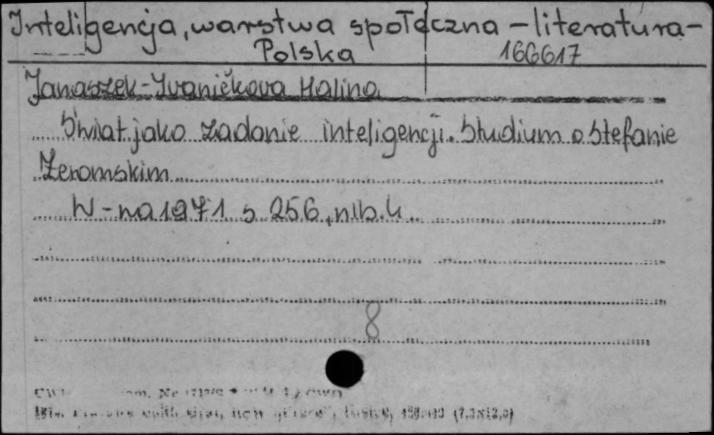 Inteligencja, warstwa społeczna – literatura –
Polska 166617
Janaszek-Ivaničkova Halina
Świat jako zadanie inteligencji. Studium o Stefanie
Żeromskim
W-wa 1971 s. 256, nlb. 4.
8
(7,5x12,5)